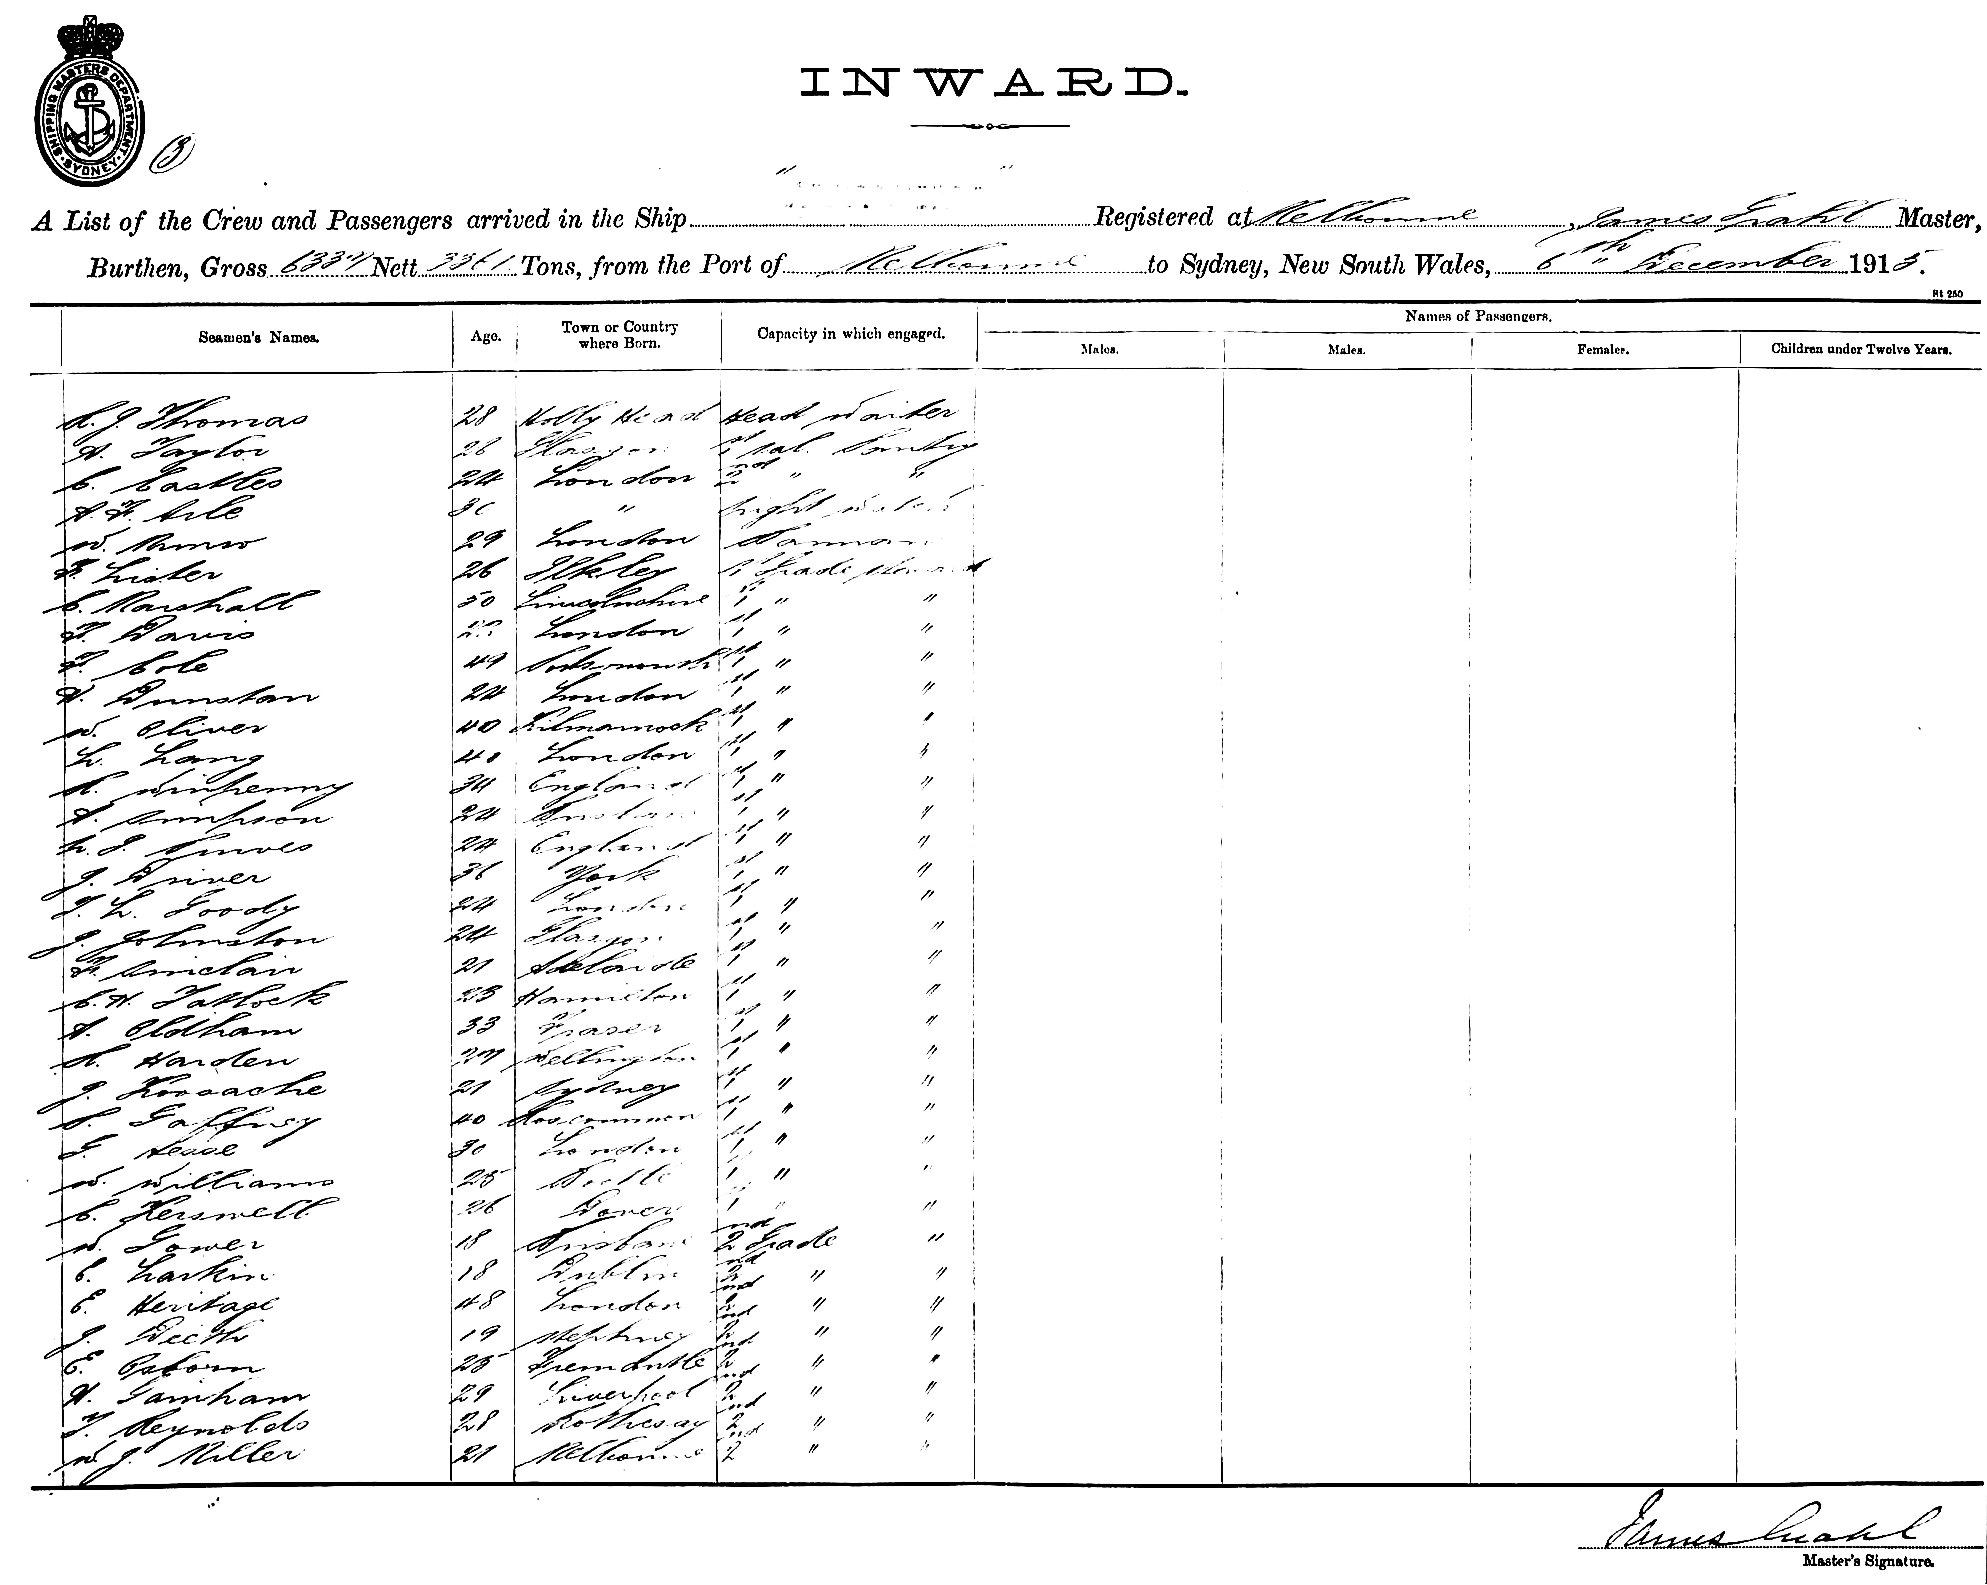 SHIPPING MASTERS DEPARTMENT
SYDNEY
3
INWARD.
A List of the Crew and Passengers arrived in the Ship " " Registered at Melbourne, James Grahl Master,
Burthen, Gross Nett 3361 Tons, from the Port of Melbourne to Sydney, New South Wales, 6th December 1915.
St 250
Seamen's Names. Age. Town or Country where Born. Capacity in which engaged. Names of Passengers.
Males. Males. Females. Children under Twelve Years.
R. J. Thomas 28 Holly Head Head Waiter
A. Taylor 26 Glasgow 1st Sal. Pantry
C. Castles 24 London 2nd " "
" night watch
W. Munro 29 London
F. Lister 26 Ilkley 1st Grade Steward
C. Marshall 50 Lincolnshire 1st " "
F. Davis London 1st " "
F. Cole 49 Portsmouth 1st " "
H. Dunstan 24 London 1st " "
W. Oliver 40 Kilmarnock 1st " "
L. Lang 40 London 1st " "
R. Winpenny 34 England 1st " "
A. Simpson 24 Brisbane 1st " "
24 England 1st " "
J. Driver 36 York 1st " "
T. L. Goody 24 London 1st " "
J. Johnston 24 Glasgow 1st " "
F. Sinclair 21 Adelaide 1st " "
C. H. Tatlock 23 Hamilton 1st " "
A. Oldham 33 Fraser 1st " "
R. Harden 27 Wellington 1st " "
J. 21 Sydney 1st " "
P. Gaffney 40 Roscommon 1st " "
G. Lease 30 London 1st " "
W. Williams 25 Bootle 1st " "
C. Kerswell 26 Dover 1st " "
W. Gower 18 Brisbane 2nd Grade "
C. Larkin 18 Dublin 2nd " "
E. Heritage 48 London 2nd " "
J. 19 Stepney 2nd " "
E. Osborn 25 Fremantle 2nd " "
H. Farnham 29 Liverpool 2nd " "
T. Reynolds 28 Rothesay 2nd " "
W. J. Miller 21 Melbourne 2nd " "
James Grahl
Master's Signature.